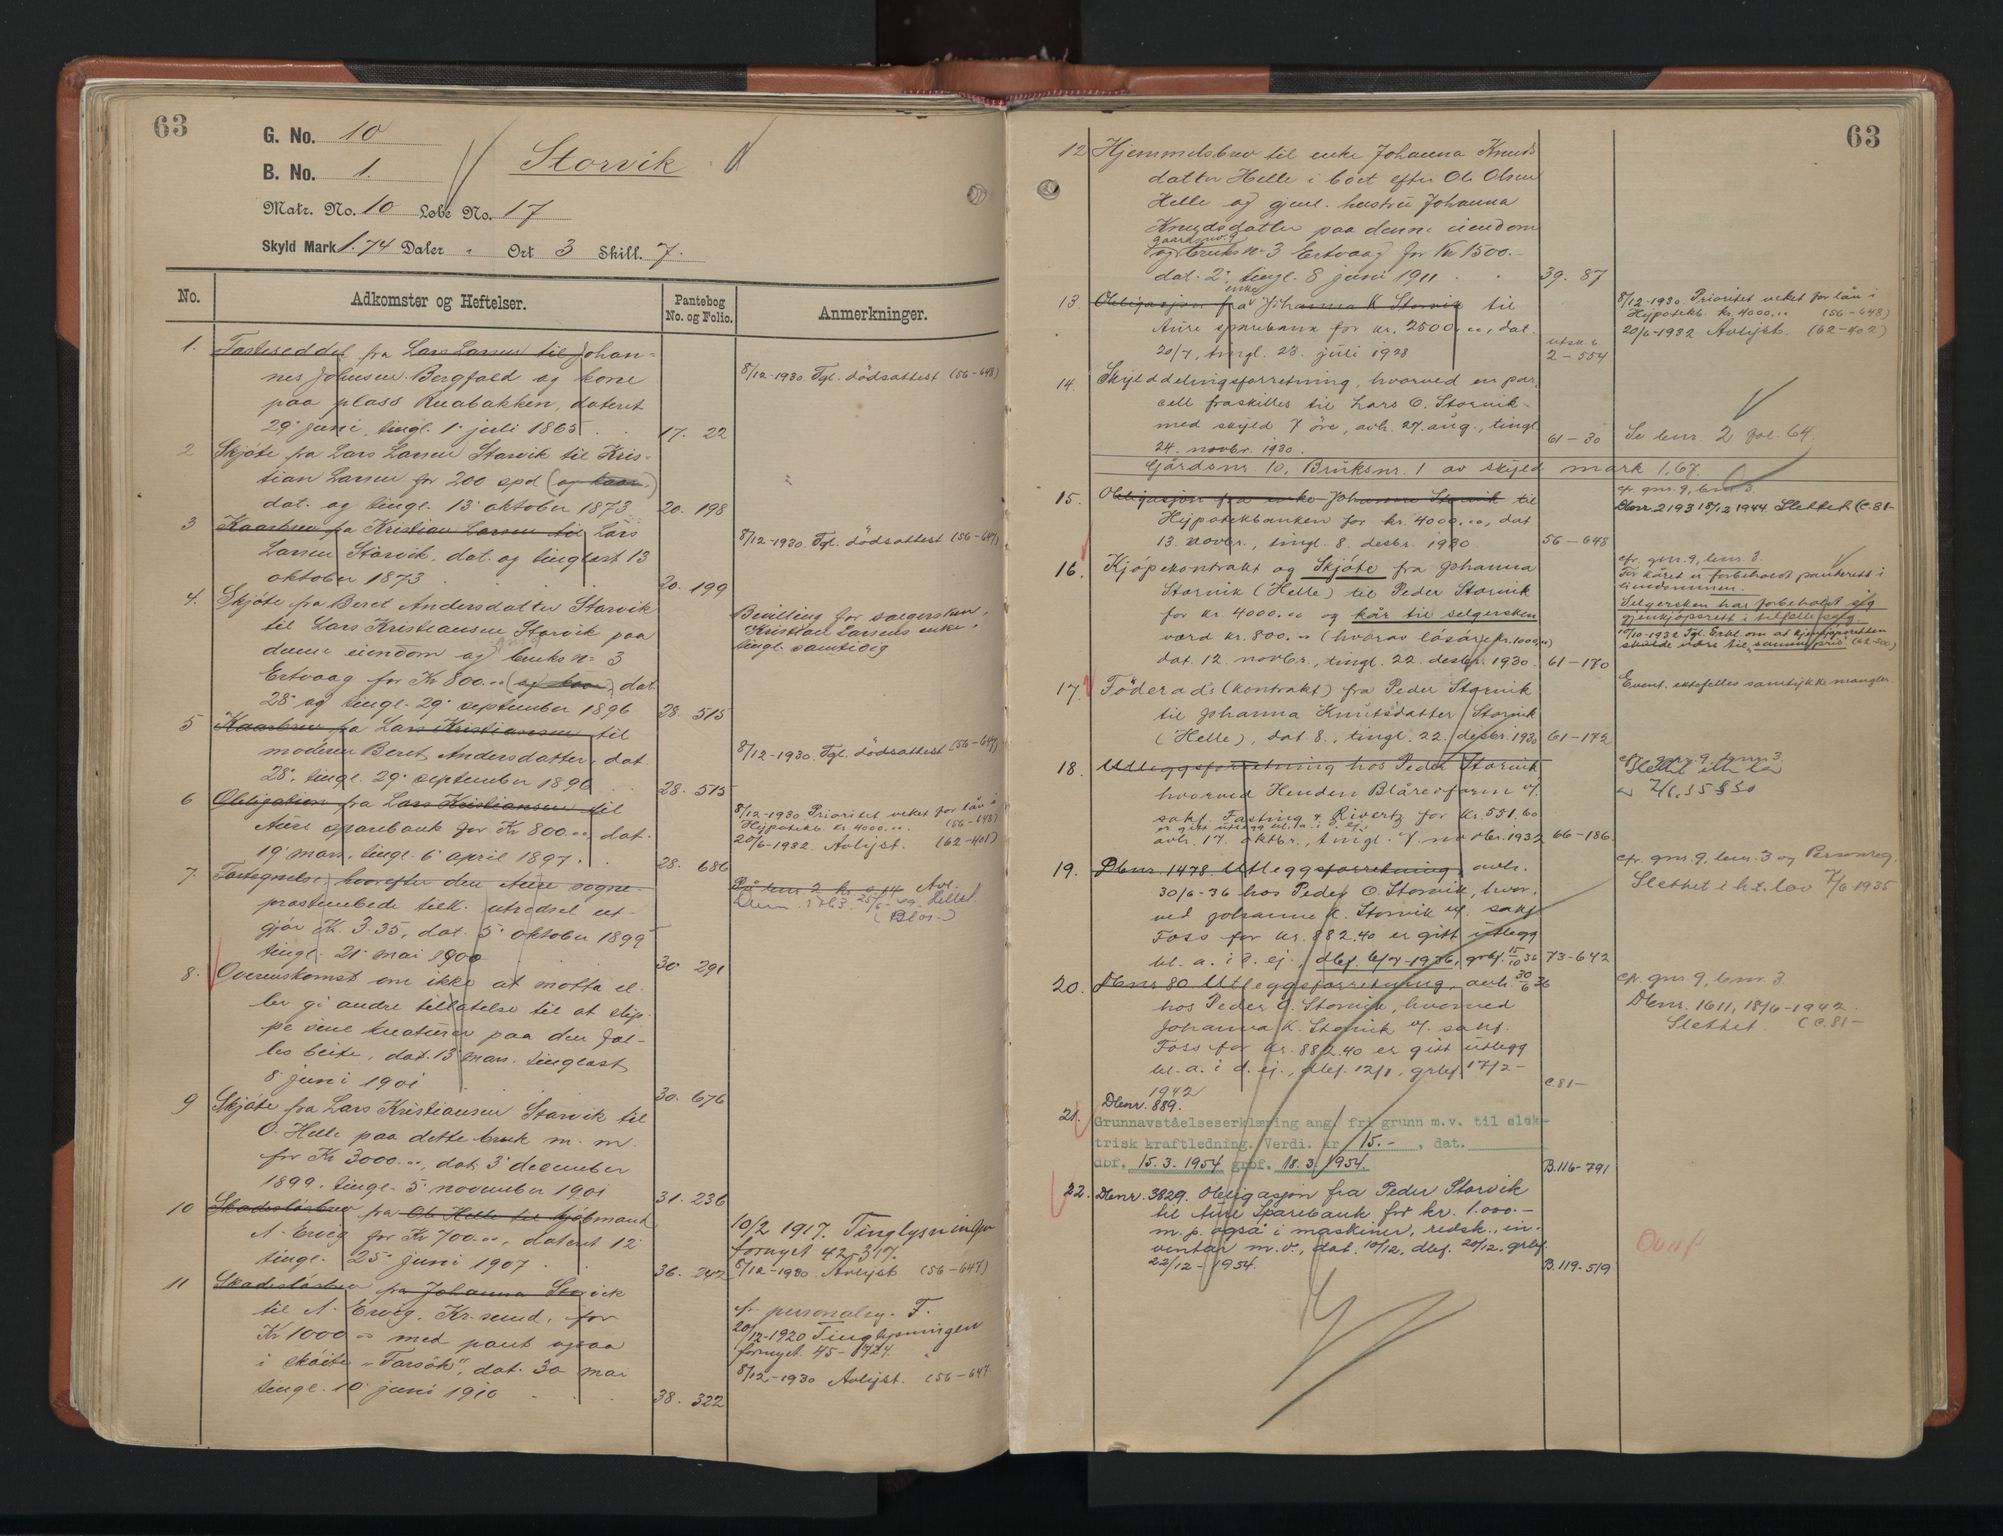 63
G. No. 10
B. No. 1.
Storvik
Matr. No. 10 Løbe No. 17
Skyld Mark 1.74 Daler " Ort 3 Skill. 7.
No.
Adkomster og Heftelser.
Pantebog No. og Folio.
Anmerkninger.
1. Fæsteseddel fra Lars Larsen til Johan-
nes Johnsen Bergfald og kone
paa plass Ruabakken, dateret
29' juni, tingl. 1' juli 1865 17. 22
8/12-1930 Tgl. dödsattest (56-648)
2 Skjöte fra Lars Larsen Storvik til Kris-
tian Larsen for 200 spd (og kaar)
dat. og tingl. 13' oktober 1873 20. 198
3 Kaarbrev fra Kristian Larsen til Lars
Larsen Storvik, dat. og tinglæst 13
oktober 1873 20. 199
8/12-1930. Tgl. dödsattest (56-647)
4. Skjöte fra Beret Andersdatter Storvik
til Lars Kristiansen Storvik paa
denne eiendom og bruks n= 3
Ertvaag for Kr 800.00 (og kaar) dat.
28' og tingl. 29' september 1896 28. 515
Bevilling for sælgersken,
Kristian Larsens enke,
tingl. samtidig
5 Kaarbrev fra Lars Kristiansen til
moderen Beret Andersdatter, dat.
28', tingl. 29' september 1896 28. 515
8/12-1930 Tgl. dödsattest (56-647)
6 Obligation fra Lars Kristiansen til
Aure sparebank for Kr 800.00, dat.
19' mars, tingl. 6' april 1897. 28. 686
8/12-1930 Prioritet veket for lån i
Hypotekb. kr. 4000.00 (56-648)
20/6-1932 Avlyst. (62-401)
7. Fastegnelse, hvorefter den Aure sogne-
prestembede tilk. utredsel ut-
gjör Kr. 3.35, dat. 5' oktober 1899
tingl. 21' mai 1900 30 291
På bnr 2 kr 0.14 Avl.
8. Overenskomst om ikke at motta el-
ler gi andre tillatelse til at slip-
pe sine kreaturer paa den fæl-
les beite, dat. 13' mars, tinglæst
8' juni 1901 30. 676
9 Skjöte fra Lars Kristiansen Storvik til
O. Helle paa dette bruk m. m.
for Kr 3000.00, dat. 3' december
1899, tingl. 5' november 1901 31. 236
10 Skadeslösbrev fra Ole Helle til kjöbmand
N. Ervig for Kr 700.00, dateret 12'
tingl. 25' juni 1907 36. 242
10/2 1917. Tinglysningen
fornyet 42-317.
8/12-1930 Avlyst (56-647)
11 Skadeslösbrev fra Johanna Storvik
til N. Ervig, Kr.sund, for
Kr 1000 00 med pant ogsaa
i skøite "Tarsök", dat. 30 mai
tingl. 10' juni 1910 38. 322
cf. personalreg. F.
20/12-1920 Tinglysningen
fornyet. 45-724.
8/12-1930 Avlyst. (56-647
63
12 Hjemmelsbrev til enke Johanna Knuds
datter Helle i boet efter Ole Olsen
Helle og gjenl. hustru Johanna
Knudsdatter paa denne eiendom
gaardsnr 9
og bruks n= 3 Ertvaag for Kr 1500.-
dat. 2', tingl. 8 juni 1911 39. 87
13 Obligasjon fra enke Johanna K Storvik til
Aure sparebank for kr. 2500.00, dat.
20/7, tingl. 23. juli 1928 utsk. b. 2-554
8/12-1930. Prioritet veket for lån i
Hypotekb. kr. 4000.00 (56-648)
20/6-1932 Avlyst. (62-402)
14. Skylddelingsforretning, hvorved en par-
cell fraskilles til Lars O. Storvik
med skyld 7 öre, avh. 27. aug., tingl.
24. novbr. 1930. 61-30
Se bnr. 2 fol. 64.
Gårdsnr. 10, Bruksnr. 1 av skyld mark 1,67.
15. Obligasjon fra enke Johanna Storvik til
Hypotekbanken for kr. 4000.00, dat
13. novbr., tingl. 8. desbr. 1930. 56-648
cfr. gnr. 9, bnr. 3.
Dbnr 2193 18/12 1944. Slettet (C.81-
16. Kjöpekontrakt og Skjöte fra Johanna
Storvik (Helle) til Peder Storvik
for kr 4000.00 og kår til selgersken
verd kr. 800.00 (hvorav lösöre kr. 1000,00)
dat. 12. novbr., tingl. 22. desbr. 1930. 61-170
cfr. gnr. 9, bnr. 3.
For kåret er forbeholdt panterett i
eiendommen.
Selgersken har forbeholdt sig
gjenkjöpsrett i tilfelle salg.
10/10-1932 Tgl. Erkl. om at kjöpesretten
skulde være til samme pris (62-500)
17. Föderåds (kontrakt) fra Peder Storvik
til Johanna Knutsdatter Storvik
(Helle), dat. 8., tingl. 22. desbr. 1930 61-172
Event. ektefelles samtykke mangler.
18. Utleggsforretning hos Peder Storvik
hvorved Henden Blåresform v/
sakf. Fasting & Rivertz for kr. 551.60
er gitt utlegg bl. a. i d. ej.
avh. 17. oktbr., tingl. 7. novbr. 1932 66-186.
cfr. gnr. 9, bnr. 3.
Slettet etter lov
av 7/6.35 § 30
19. Dbnr 1478 Utleggsforretning, avh.
30/6-36 hos Peder O. Storvik, hvor-
ved Johanne K. Storvik v/ sakf.
Foss for kr. 882.40 er gitt utlegg
bl. a. i d. ej., dbf. 6/7-1936, grbf. 15/10 36 73-642
cfr. gnr. 9, bnr. 3 og Personreg.
Slettet i h.t. lov 7/6 1935
20. Dbnr 80 Utleggsforretning, avh. 30/6 36
hos Peder O. Storvik, hvorved
Johanna K. Storvik v/ sakf.
Foss for kr. 882.40 er gitt utlegg
bl. a. i d. ej., dbf. 12/1, grbf 17/2-
1942 C.81-
cfr. gnr. 9, bnr. 3.
Dbnr. 1611, 18/6-1942
Slettet. (C.81-
21. Dbnr. 889.
Grunnavståelseserklæring ang. fri grunn m.v. til elek-
trisk kraftledning. Verdi. kr 15.- , dat.
dbf. 15.3.1954 grbf. 18.3.1954. B.116-791
22. Dbnr. 3829. Obligasjon fra Peder Storvik
til Aure Sparebank for kr. 1.000.-
m. p. også i maskiner, redsk., in-
ventar m.v., dat. 10/12, dbf. 20/12, grbf.
22/12-1954. B.119-519
Overf